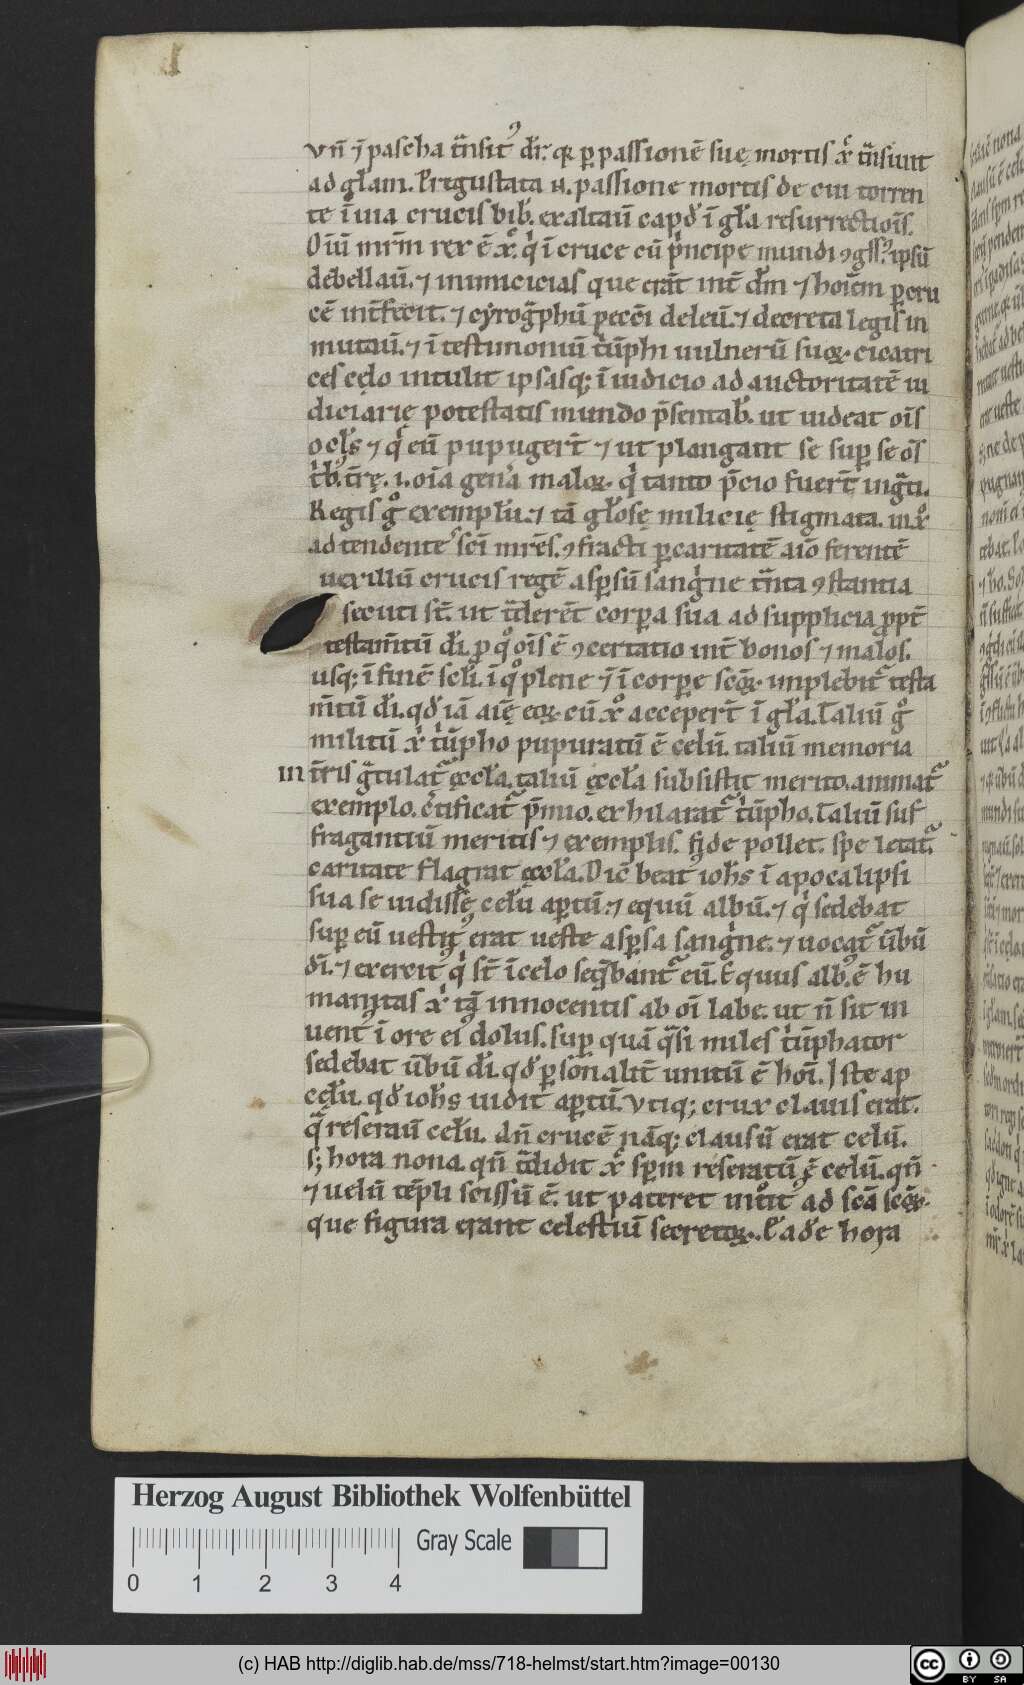 vn̄ ⁊ pascha t̄nsitꝰ dr̄. qꝛ ꝑ passionē suę mortis xp̄c t̄nsiuit
ad gl̄am. Pregustata .n. passione mortis de cui torren
te ī uia crucis bib͛. exaltauit capđ ī gl̄a resurrectiōis.
mr̄m rex ē xp̄c. qͥ ī cruce cū pͥncipe mundi ꝯḡssꝰ. ipsū
debellaū. ⁊ inimicicias que erāt int̄ dm̄ ⁊ hoīem ꝑ cru
cē int̄fecit. ⁊ cyrog̃phū peccī deleū. ⁊ decreta legis in
mutaū. ⁊ ī testimoniū tͥūphi uulnerū suoꝝ cicatri
ces cęlo intulit ipsasqꝫ ī iudicio ad auctoritatē iu
diciarię potestatis mundo p̄sentab͛. ut uideat oīs
ocl̄s ⁊ qͥ eū pupugerī ⁊ ut plangant se suꝑ se oīs
tͥbꝰ t̄rę. .i. oīa gen̄a maloꝝ qͥ tanto p̄cio fuer̄t ing̃ti.
Regis gͦ exemplū. ⁊ tā gl̄osę milicię stigmata. in xͦ
ad tendenteˢ scī mr̄es. ꝯfracti ꝑ caritatē aīo ferentē
uexillū crucis regē asꝑsū sangͥne t̄nta ꝯstantia
secuti st̄. ut t̃derēt corꝑa sua ad supplicia ꝓpt̄
testam̄tū dī. ꝑ qͦ oīs ē ꝯcertatio int̄ bonos ⁊ malos.
usqꝫ ī finē scl̄i. ī qͦ plene ⁊ ī corꝑe scōꝝ implebit᷑ testa
m̄tū dī. qđ iā aīę eoꝝ cū xͦ acceper̄t ī gl̄a. Taliū gͦ
militū xͥ tͥūpho pupuratū ē celū. taliū memoria
in t̄ris g̃tulat᷑ ęccl̄a. taliū ęccl̄a subsistit merito. animat᷑
exemplo. c̄tificat᷑ p̄mio. exhilarat᷑ tͥūpho. Taliū suf
fragantiū meritis ⁊ exemplis. fide pollet. spe letat᷑.
caritate flagrat ęccl̄a. Dic̄ beatꝰ ioh̄s ī apocalipsi
sua se uidisse cęlū aꝑtū. ⁊ equū albū. ⁊ qͥ sedebat
suꝑ eū uestitꝰ erat ueste asꝑsa sangͥne. ⁊ uocat᷑ ūbū
dī. ⁊ exercitꝰ qͥ st̄ ī celo seq̄bant᷑ eū. Equus albꝰ ē hu
manitas xͥ tā innocentis ab oī labe. ut n̄ sit in
uentꝰ ī ore eiꝰ dolus. suꝑ quā q̃si miles tͥūphator
sedebat ūbū dī. qđ ꝑsonalit̄ unitū ē hoī. Iste aꝑ
celū. qđ ioh̄s uidit aꝑtū. Vtiqꝫ crux clauis erat.
q̃ reseraū celū. An̄ crucē nāqꝫ clausū erat celū.
sꝫ hora nona. qn̄ t̃didit xp̄c sp̄m reseratū ē celū. qn̄
⁊ uelū tēpli scissū ē. ut pateret int̄oitꝰ ad scā scōꝝ
que figura erant celestiū secretoꝝ. Eađe hora
Herzog August Bibliothek Wolfenbüttel
Gray Scale
0 1 2 3 4
(c) HAB http://diglib.hab.de/mss/718-helmst/start.htm?image=00130
cc BY SA